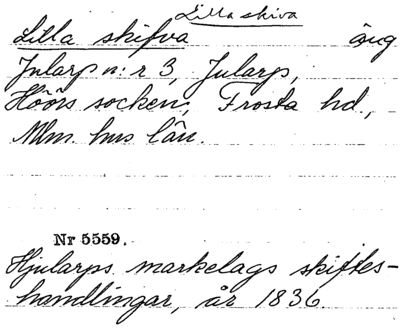 Lilla skiva
Lilla skifva äng
Jularp n:r 3, Jularp,
Höörs socken, Frosta hd.,
Mlm. hus län.
Nr 5559.
Hjularps markelags skiftes-
handlingar, år 1836.